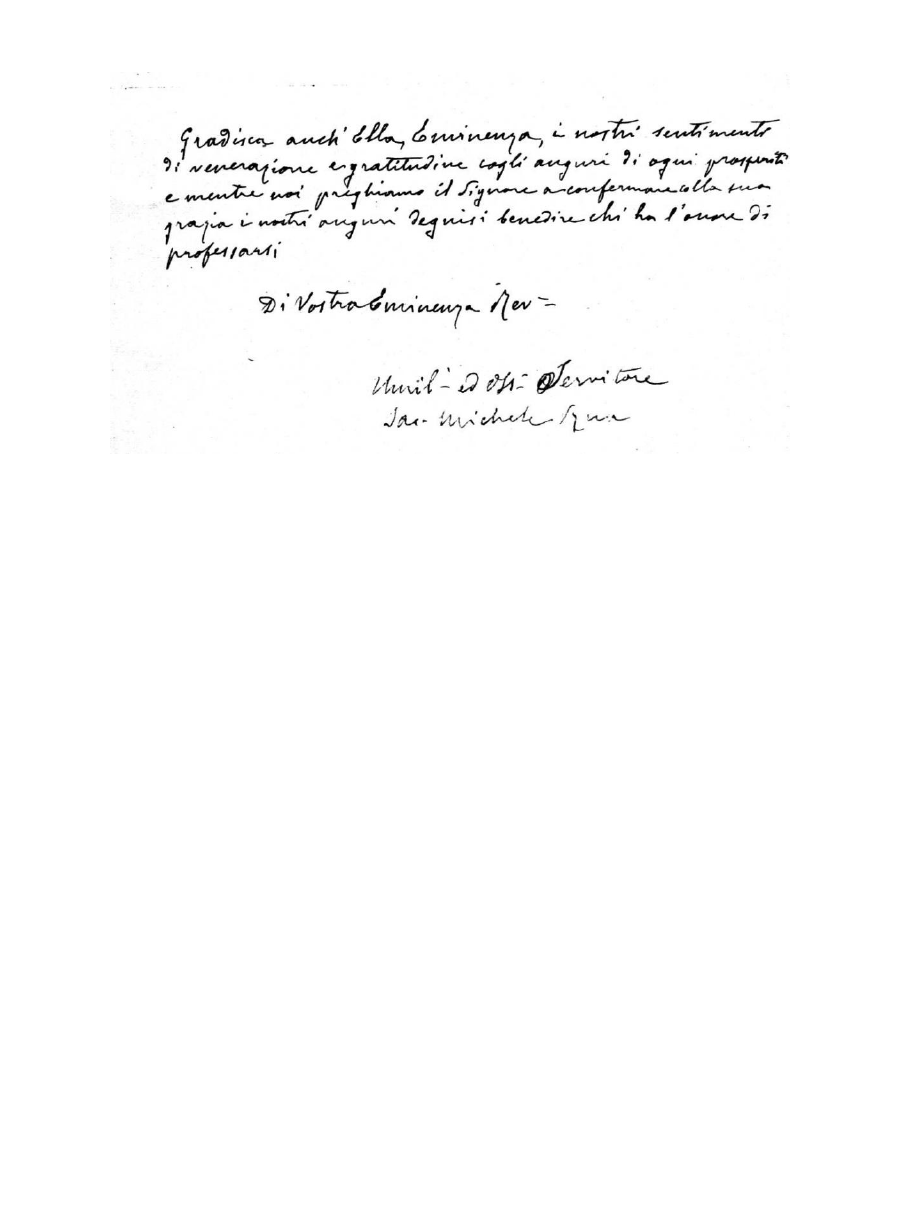 Gradisca anch'Ella, Eminenza, i nostri sentimenti
di venerazione e gratitudine cogli auguri di ogni prosperità
e mentre noi preghiamo il Signore a confermare colla sua
grazia i nostri auguri degnisi benedire chi ha l'onore di
professarsi
Di Vostra Eminenza Rev=
Umil- ed Oss- Servitore
Sac- Michele Rua